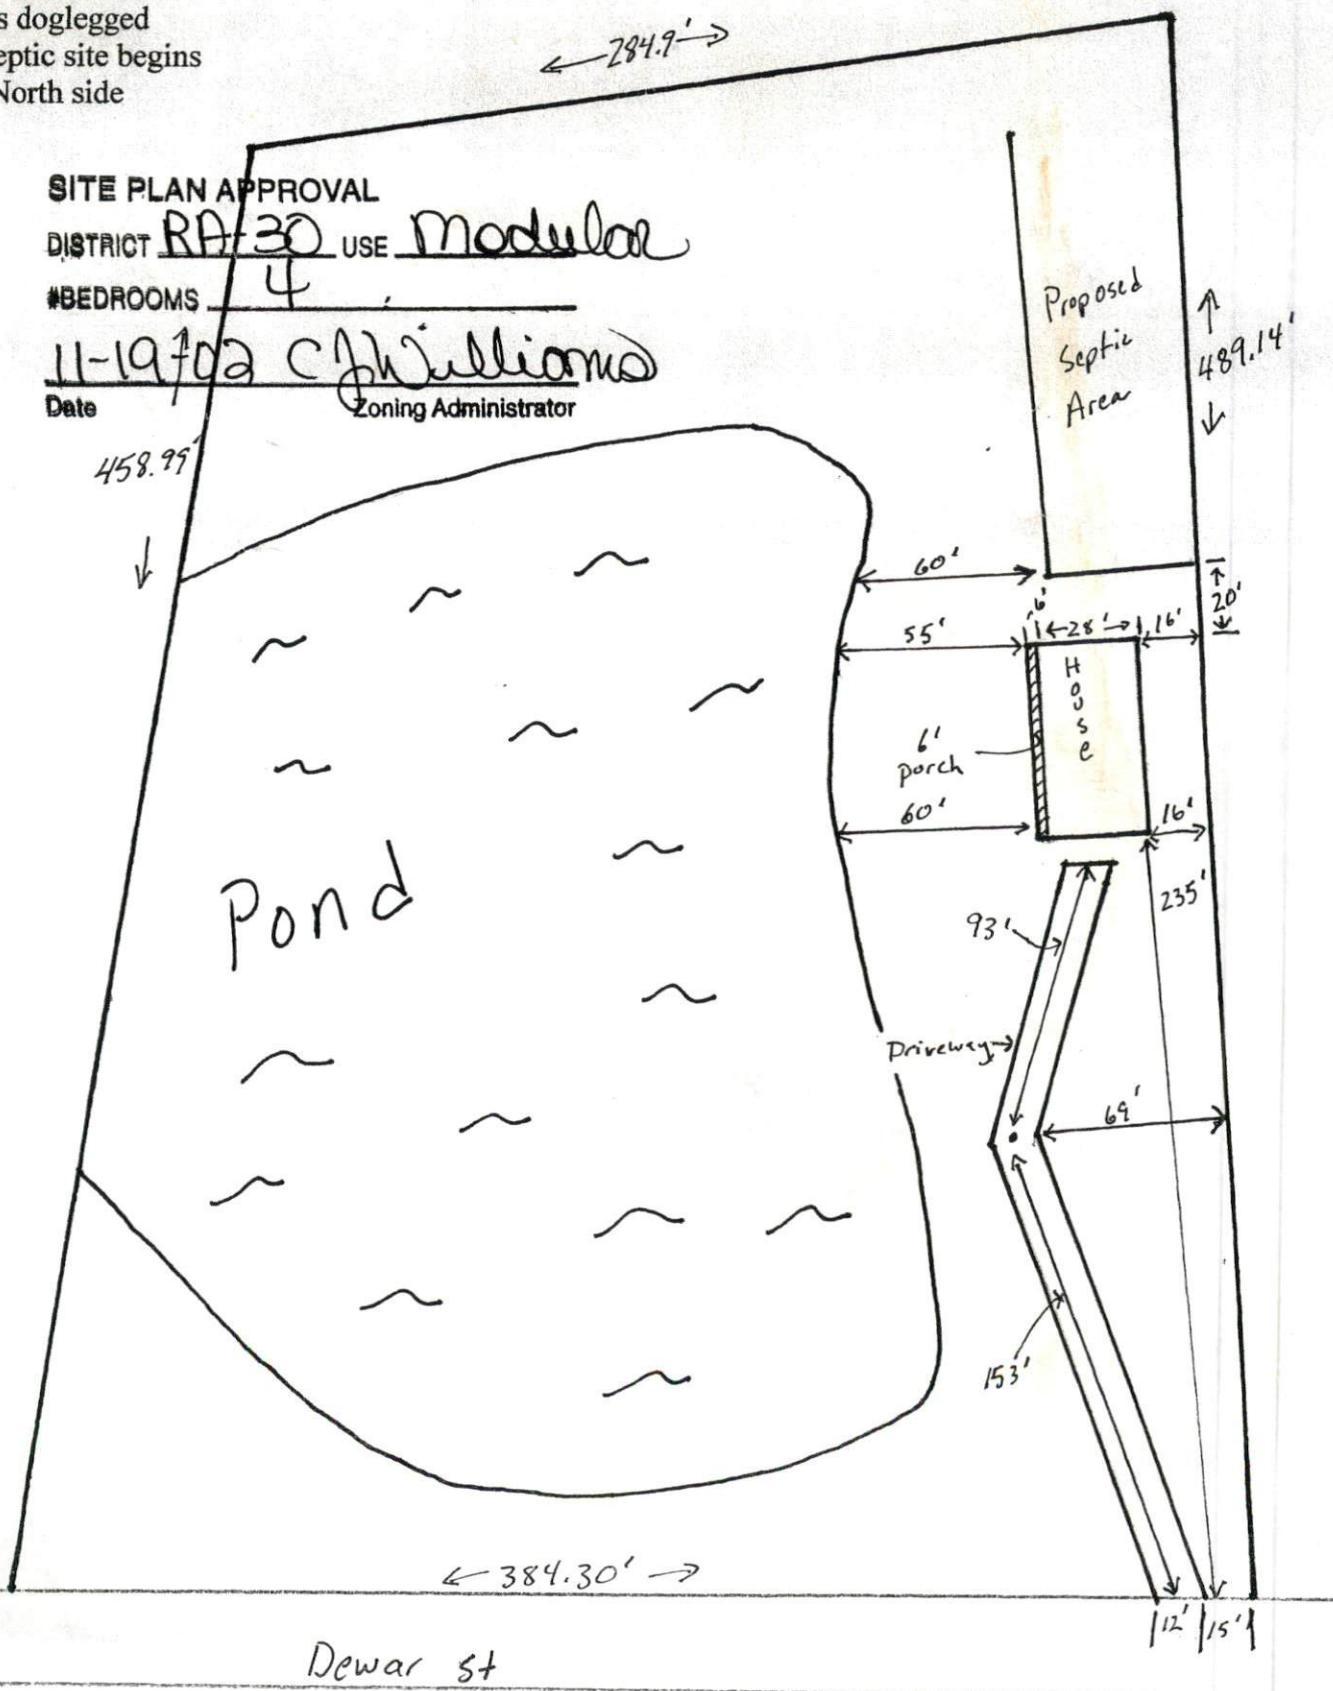 s doglegged
eptic site begins
North side
← 284.9' →
SITE PLAN APPROVAL
DISTRICT RA-30 USE Modular
#BEDROOMS 4
11-19-02 CJWilliams
Date Zoning Administrator
458.99'
Proposed
Septic
Area
489.14'
60'
20'
6'
55'
28'
16'
House
6'
porch
60'
16'
235'
93'
Pond
Driveway
69'
153'
384.30'
12'
15'
Dewar st